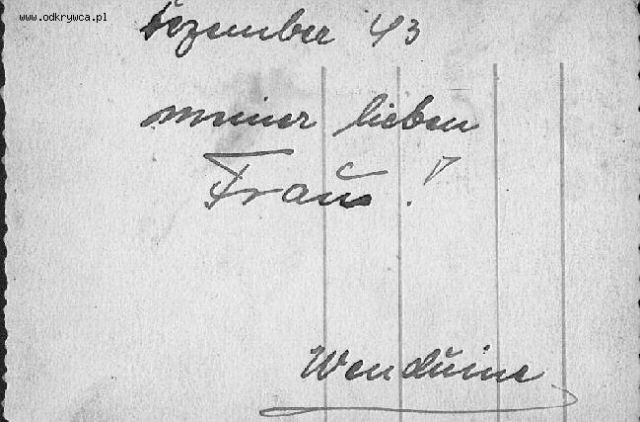 www.odkrywca.pl
Dezember 43
meiner lieben
Frau!
Wenduine